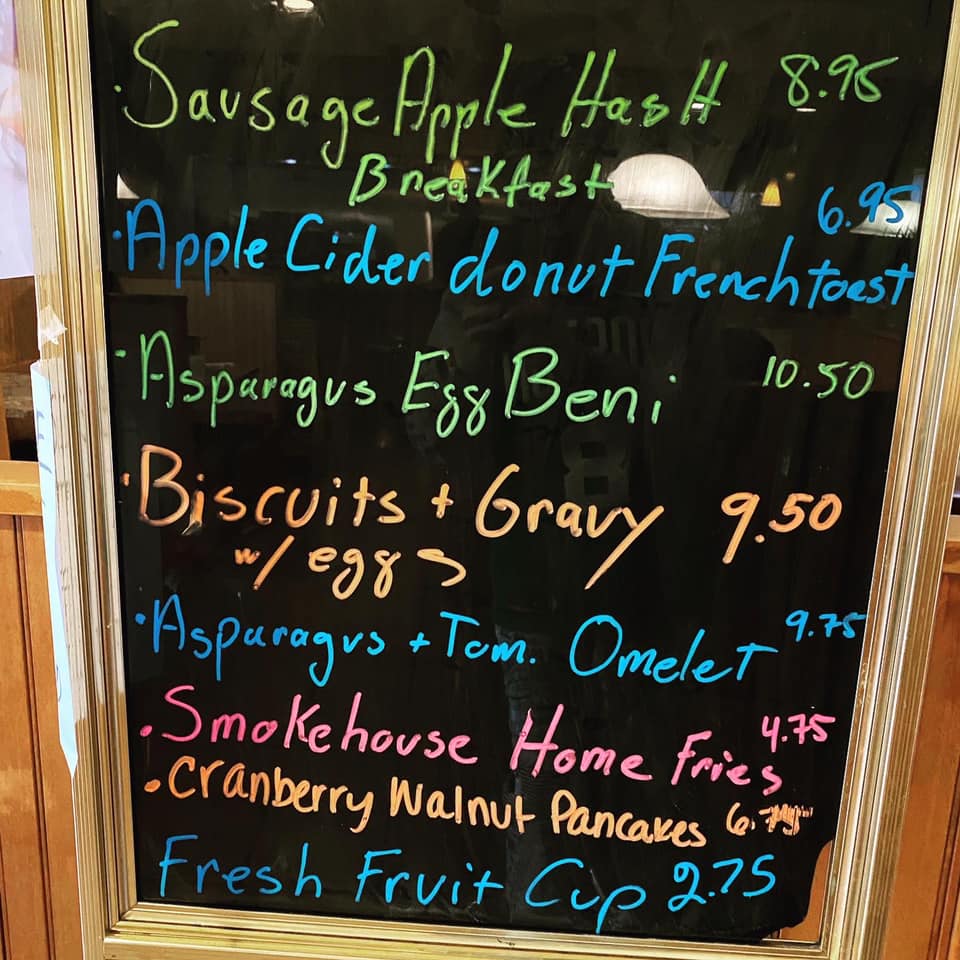 · Sausage Apple HasH 8.95
Breakfast
6.95
· Apple Cider donut French toast
· Asparagus Egg Beni 10.50
· Biscuits + Gravy 9.50
w/ eggs
· Asparagus + Tom. OmeleT 9.75
· Smokehouse Home Fries 4.75
· Cranberry Walnut Pancakes
Fresh Fruit Cup 2.75